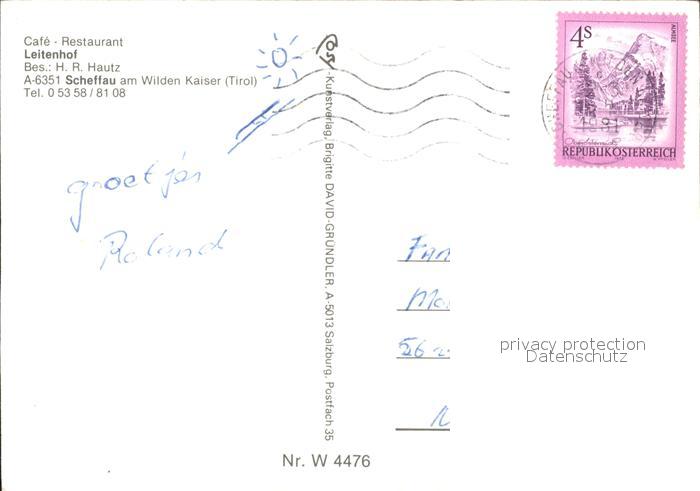 Café - Restaurant
Leitenhof
Bes.: H. R. Hautz
A-6351 Scheffau am Wilden Kaiser (Tirol)
Tel. 0 53 58 / 81 08
groetjes
Roland
-kunstverlag, Brigitte DAVID-GRÜNDLER, A-5013 Salzburg, Postfach 35
4s
ALMSEE
REPUBLIK ÖSTERREICH
Fam
56
privacy protection
Datenschutz
Nr. W 4476